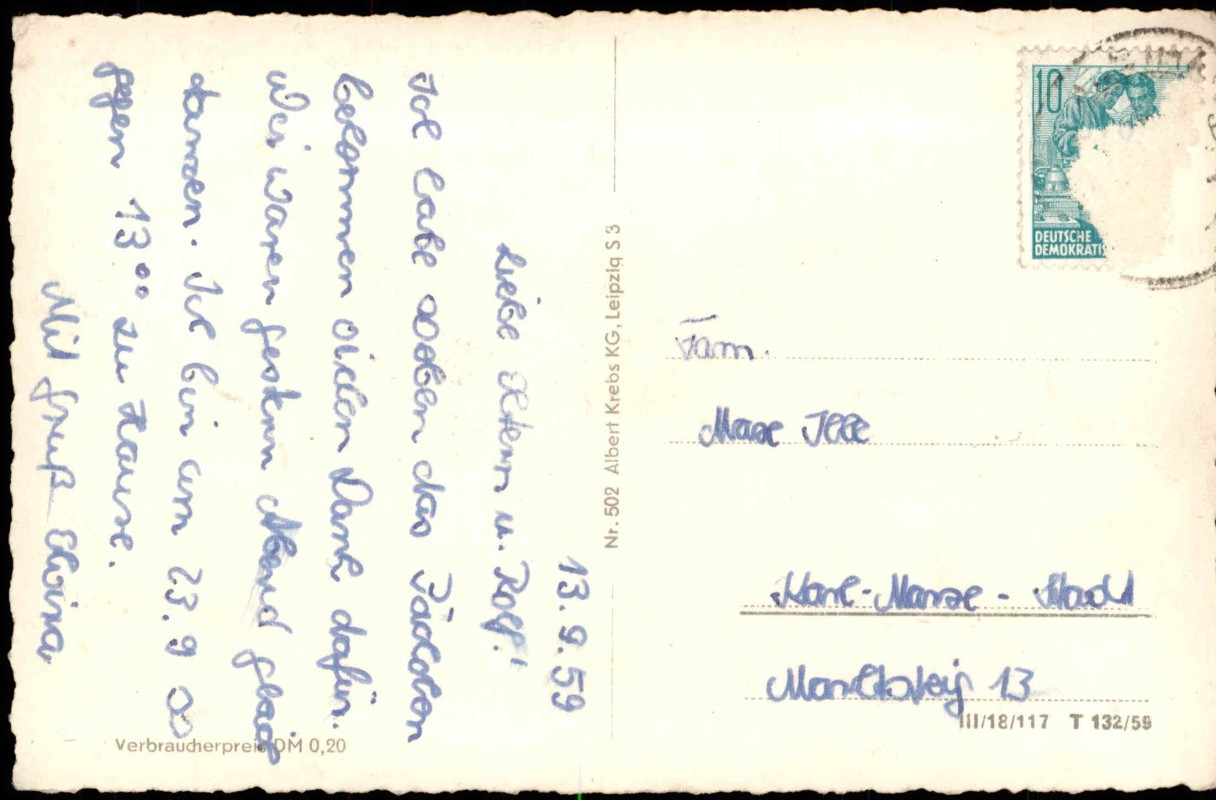 13.9.59
Liebe Eltern u. Rolf!
Ich habe soeben das Päckchen
bekommen vielen Dank dafür.
Wir waren gestern Abend gleich
tanzen. Ich bin am 23.9 so
gegen 13⁰⁰ zu Hause.
Mit Gruß
Nr. 502 Albert Krebs KG, Leipzig S 3
Verbraucherpreis DM 0,20
10
DEUTSCHE
DEMOKRATIS
Fam.
Max Ille
Karl-Marx-Stadt
Marktsteig 13
III/18/117 T 132/59